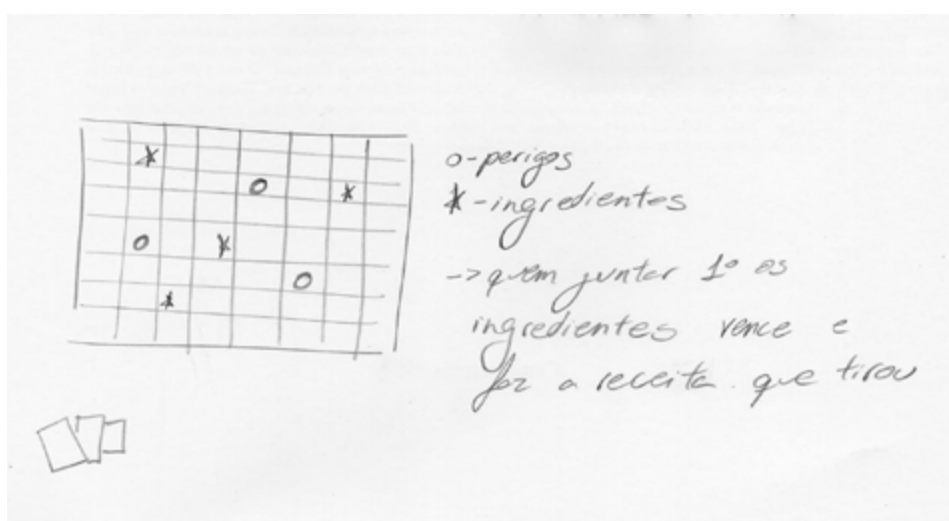 o-perigos
*-ingredientes
-> quem juntar 1º os
ingredientes vence e
faz a receita que tirou